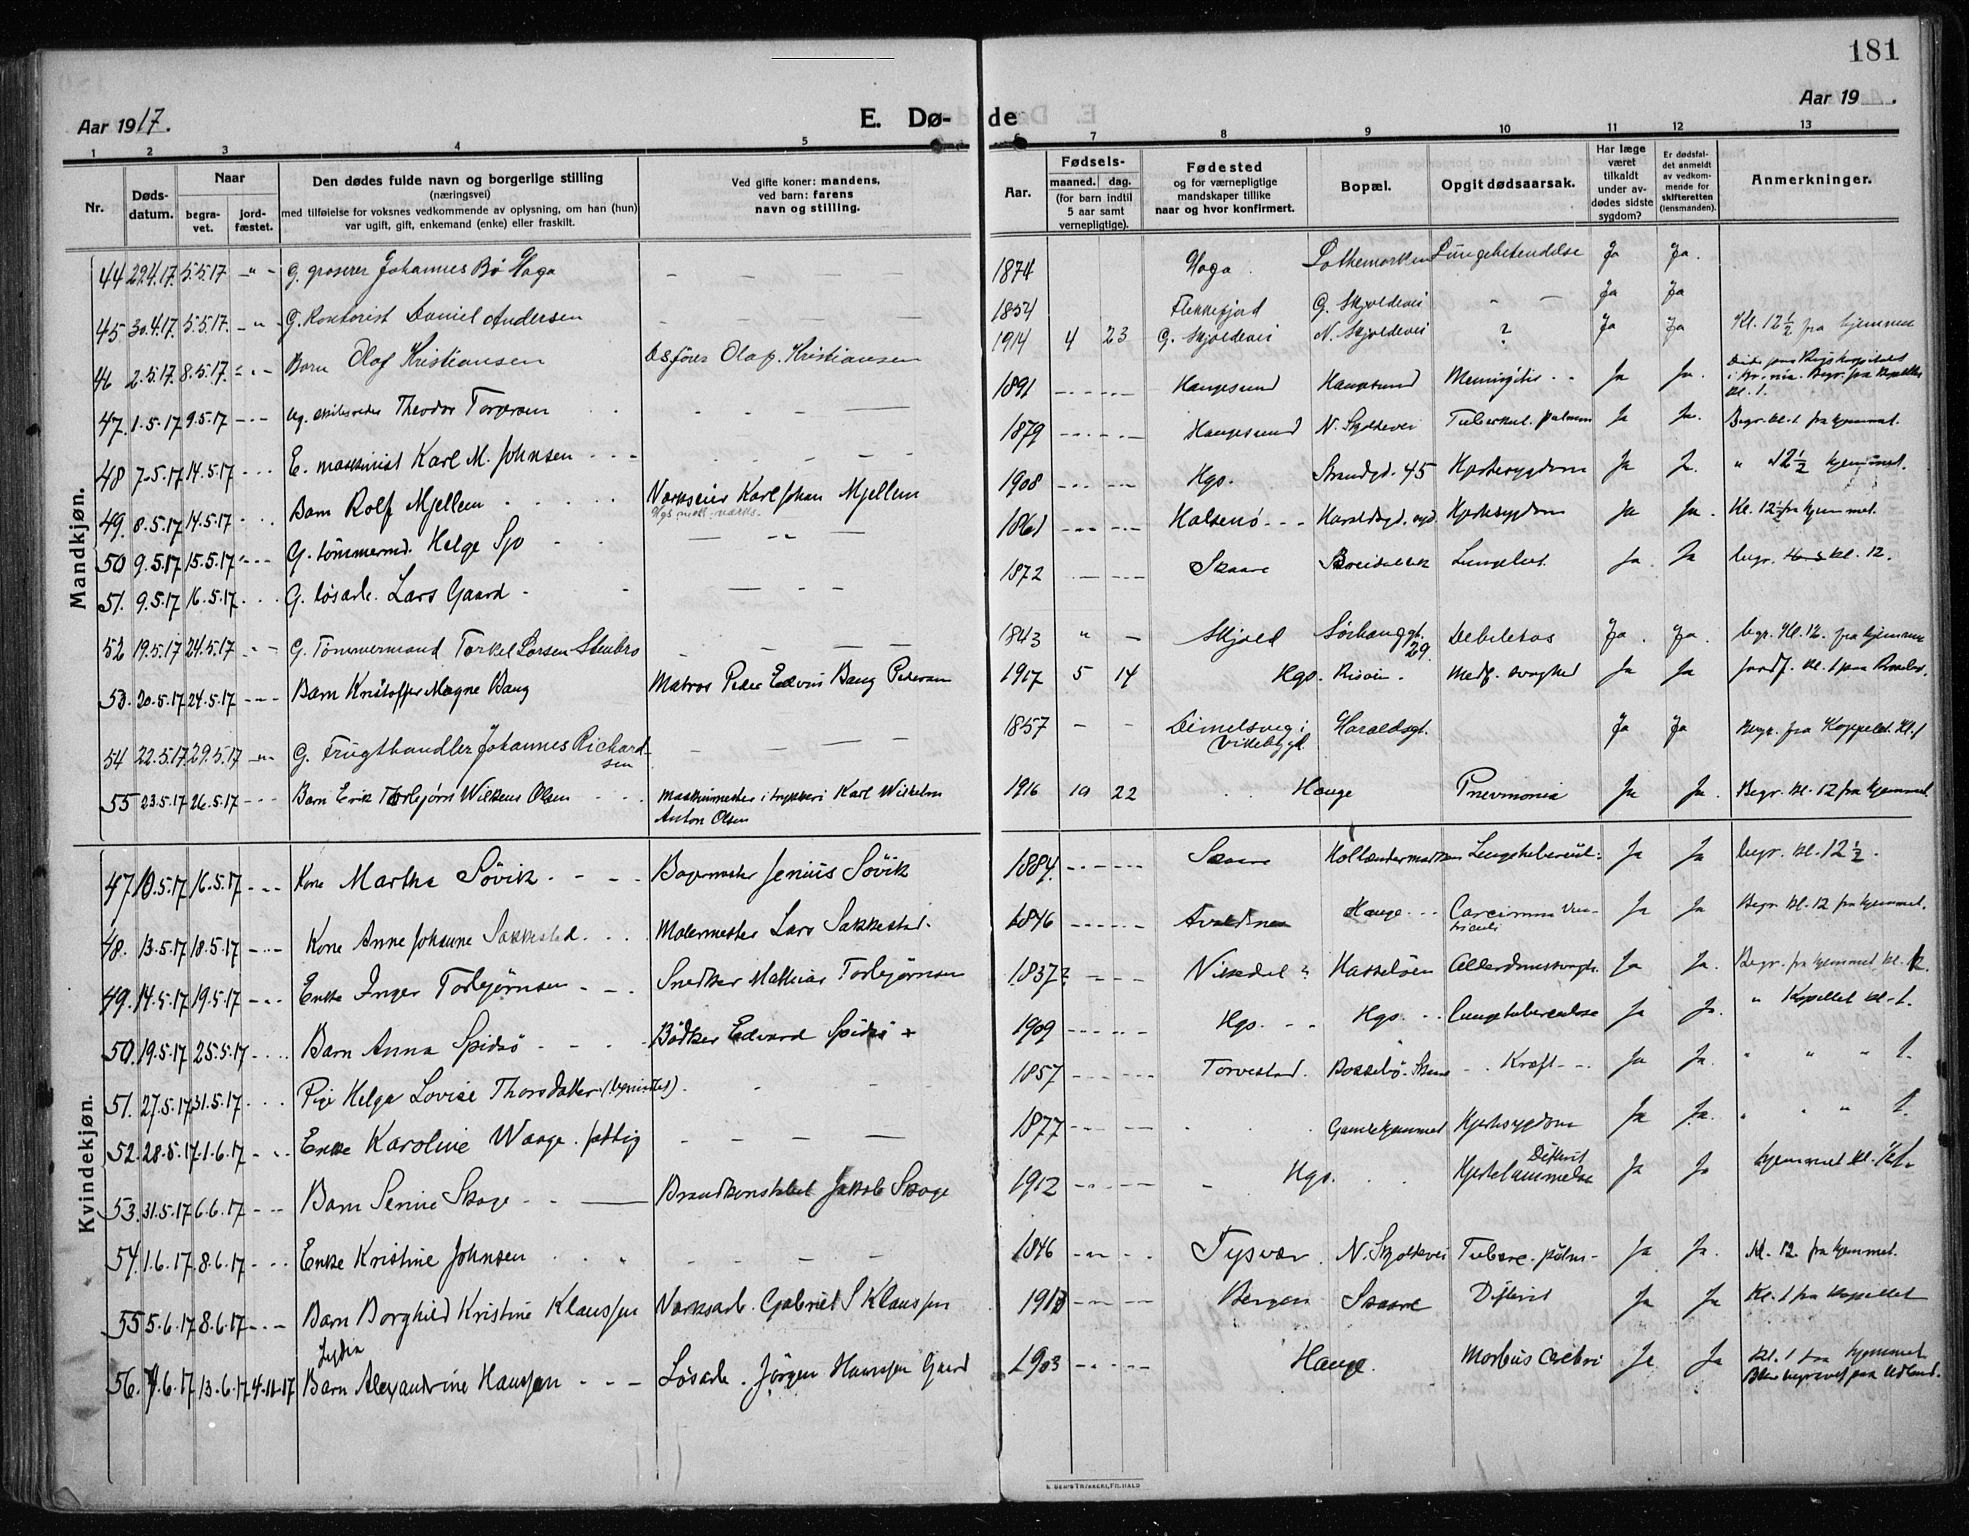 181
Aar 1917.
E. Dø-
de
Aar 19 .
1 2 3 4 5 6 7 8 9 10 11 12 13
Nr.
Døds-
datum.
Naar
begra-
vet.
jord-
fæstet.
Den dødes fulde navn og borgerlige stilling
(næringsvei)
med tilføielse for voksnes vedkommende av oplysning, om han (hun)
var ugift, gift, enkemand (enke) eller fraskilt.
Ved gifte koner: mandens,
ved barn: farens
navn og stilling.
Aar.
Fødsels-
maaned. dag.
(for barn indtil
5 aar samt
vernepligtige).
Fødested
og for værnepligtige
mandskaper tillike
naar og hvor konfirmert.
Bopæl.
Opgit dødsaarsak.
Har læge
været
tilkaldt
under av-
dødes sidste
sygdom?
Er dødsfal-
det anmeldt
av vedkom-
mende for
skifteretten
(lensmanden).
Anmerkninger.
Mandkjøn.
44 29.4.17. 5.5.17 -"- G. groserer Johannes Bø Haga - - - 1874 Haga Lothemarken Lungebetendelse Ja Ja.
45 30.4.17. 5.5.17. -"- G. Kontorist Daniel Andersen - - - 1854 Flekkefjord G. Skjoldevei " - Ja Ja
46 2.5.17. 8.5.17. Barn Olaf Kristiansen Olaf. Kristiansen 1914 4 23 G. Skjoldevei N. Skjoldevei ? Ja Ja Kl. 12½ fra hjemmet
47. 1.5.17 9.5.17 ug. skibsreder Theodor Torgersen 1891 Haugesund Haugesund Meningitis Ja Ja. Begr. fra Kapellet
Kl. 1.
48 7.5.17 14.5.17 E. maskinist Karl M. Johnsen 1879 Haugesund N. Skjoldevei Tuberkul. pulmon Ja Ja. Begr. kl. 1 fra hjemmet.
49. 8.5.17 14.5.17 Barn Rolf Mjellem Verkseier Karl Johan Mjellem
1908 Hgs. Strandgd. 45 Hjertesygdom Ja J. " 12½ hjemmet.
50 9.5.17 15.5.17 G. tömmermd. Helge Sjo 1861 Halsenö Hjertesygdom Ja Ja. Kl. 12½ fra hjemmet.
51. 9.5.17 16.5.17 G. løsarb. Lars Gaard 1872 Skaare Breidablik Ja. Ja begr. kl. 12.
52 19.5.17 24.5.17 G. Tömmermand Torkel Larsen Stenbro 1843 " - Skjold Sörhauggt.
29. Debilitas Ja. Ja. begr. Kl. 12. fra hjemmet
53. 20.5.17 24.5.17 Barn Kristoffer Magne Baug Matros Peder Edvin Baug Pedersen 1917 5 14 Hgs. Risøen. Medf. svaghed Ja Ja
54 22.5.17 29.5.17 -"- G. Frugthandler Johannes Richard-
sen 1857 - -
Vikebygd Haraldsgt. Ja Ja Begr. fra Kappelet. Kl. 1
55 23.5.17 26.5.17 Barn Erik Thorbjørn Wilkens Olsen maskinmester i trykkeri Karl Wilhelm
Anton Olsen 1916 10 22 Hauge Pneumonia Ja Ja. Begr. kl. 12 fra hjemmet.
Kvindekjøn.
47 10.5.17 16.5.17 Kone Martha Søvik Bagermester Jenius Søvik 1884. Skaare Lungetuberkul. Ja Ja begr. kl. 12½.
48. 13.5.17 18.5.17 Kone Anne Johanne Sakkestad. Malermester Lars Sakkestad. 1846 Avaldsnes Hauge Carcinoma Ven-
triculi Ja Ja Begr. kl. 12 fra hjemmet.
49. 14.5.17 19.5.17 Enke Inger Torbjørnsen Snedker Mathias Torbjørnsen 1837? Hasseløen Alderdomssvagh. Ja Ja. Begr. fra hjemmet kl.
50. 19.5.17 25.5.17 Barn Anna Spidsø Bødker Edvard Spidsø + 1909 Hgs. Hgs. Lungetuberculose Ja Ja. " Kapellet kl. 1.
51. 27.5.17 31.5.17 Pige Helga Lovise Thorsdatter 1857 Torvestad. Bosselø. Kræft Ja Ja. " " " 1.
52. 28.5.17. 1.6.17 Enke Karoline Waage. fattig 1877 Gamlehjemmet Hjertesygdom Ja Ja. " " " 1.
53. 31.5.17 6.6.17 Barn Senie Skoge Brandkonstabel Jakob Skoge 1912 Hgs. Difterit
Hjertelammelse Ja Ja hjemmet kl.
54. 1.6.17 8.6.17 Enke Kristine Johnsen 1846 Tysvær. N. Skjoldevei Tuberc. pulm. Ja Ja. Kl. 12 fra hjemmet.
55 5.6.17 8.6.17 Barn Borghild Kristine Klaussen Verksarb. Gabriel S Klaussen Bergen Skaare Difterit Ja Ja Kl. 1 fra Kapellet
Lydia
56. 7.6.17 13.6.17 4.11.17 Barn Alexandrine Hanssen Løsarb. Jørgen Hanssen Gaard 1903 Hauge. Morbus Cerebri Ja Ja Kl. 1 fra hjemmet